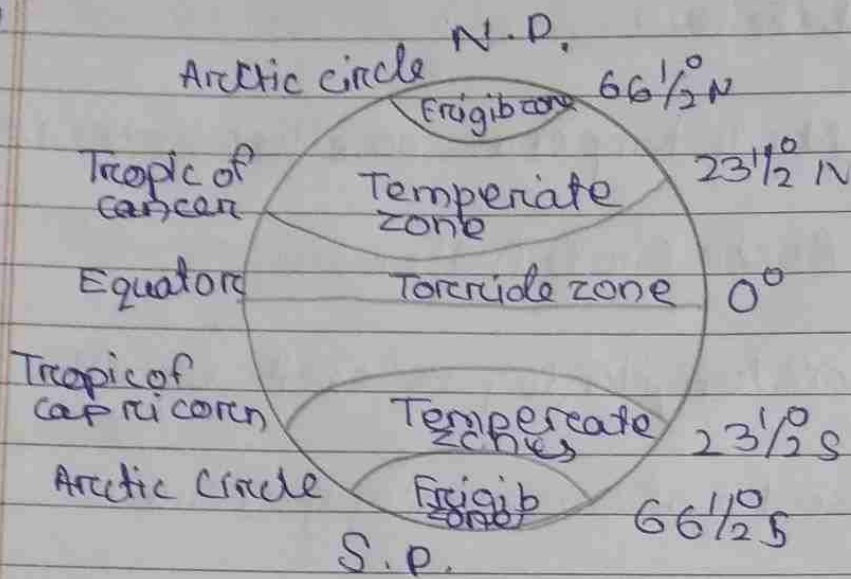 N.P.
Arctic circle 66 1/2° N
Frigib zone
Tropic of
cancer
23 1/2° N
Temperate
zone
Equator Torride zone 0°
Tropic of
capricorn
Temperate
zones
23 1/2° S
Arctic Circle
Frigib
zone
66 1/2° S
S.P.